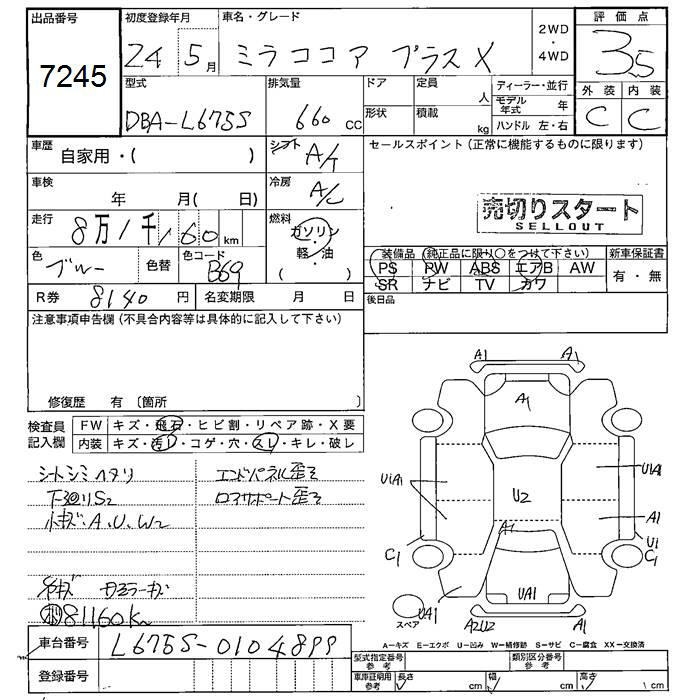 出品番号
7245
初度登録年月
24 5月
車名・グレード
ミラココア プラスX
2WD
・
4WD
評価点
3.5
外装 内装
C C
型式
DBA-L675S
排気量
660 cc
ドア
形状
定員
人
積載
kg
ディーラー・並行
モデル年式 年
ハンドル 左・右
車歴
自家用・( )
シフト
A/T
車検
年 月( 日)
冷房
A/C
走行
8万1千160km
燃料
ガソリン
・
軽・油
( )
色
ブルー
色替
色コード
B69
R券 8140円
名変期限 月 日
セールスポイント(正常に機能するものに限ります)
売切りスタート
SELLOUT
装備品 (純正品に限り○をつけて下さい)
PS PW ABS エアB AW
SR ナビ TV カワ
新車保証書
有・無
後日品
注意事項申告欄(不具合内容等は具体的に記入して下さい)
修復歴 有 〔箇所
検査員記入欄
FW キズ・飛石・ヒビ割・リペア跡・X要
内装 キズ・汚レ・コゲ・穴・スレ・キレ・破レ
シートシミヘタリ
下廻りS2
小キズ、A、U、W2
エンドパネル歪ミ
ロアサポート歪ミ
81160km
A1 A1
A1
U1A1
U2
U1A1
A1
A1
U1
C1
C1
UA1
UA1
スペア
A2U2
A1
A=キズ E=エクボ U=凹み W=補修跡 S=サビ C=腐食 XX=交換済
車台番号
L675S-0104899
登録番号
型式指定番号
参考
類別区分番号
参考
車庫証明用
参考
長さ cm
幅 cm
高さ cm